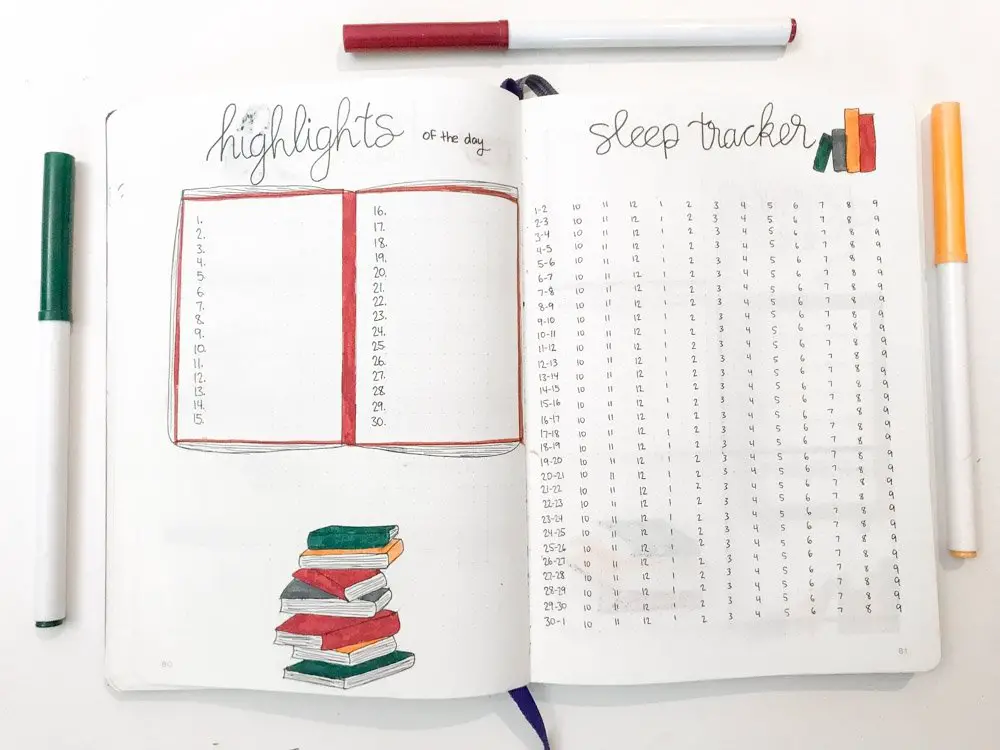 highlights of the day
1.
2.
3.
4.
5.
6.
7.
8.
9.
10.
11.
12.
13.
14.
15.
16.
17.
18.
19.
20.
21.
22.
23.
24.
25.
26.
27.
28.
29.
30.
80
sleep tracker
1-2 10 11 12 1 2 3 4 5 6 7 8 9
2-3 10 11 12 1 2 3 4 5 6 7 8 9
3-4 10 11 12 1 2 3 4 5 6 7 8 9
4-5 10 11 12 1 2 3 4 5 6 7 8 9
5-6 10 11 12 1 2 3 4 5 6 7 8 9
6-7 10 11 12 1 2 3 4 5 6 7 8 9
7-8 10 11 12 1 2 3 4 5 6 7 8 9
8-9 10 11 12 1 2 3 4 5 6 7 8 9
9-10 10 11 12 1 2 3 4 5 6 7 8 9
10-11 10 11 12 1 2 3 4 5 6 7 8 9
11-12 10 11 12 1 2 3 4 5 6 7 8 9
12-13 10 11 12 1 2 3 4 5 6 7 8 9
13-14 10 11 12 1 2 3 4 5 6 7 8 9
14-15 10 11 12 1 2 3 4 5 6 7 8 9
15-16 10 11 12 1 2 3 4 5 6 7 8 9
16-17 10 11 12 1 2 3 4 5 6 7 8 9
17-18 10 11 12 1 2 3 4 5 6 7 8 9
18-19 10 11 12 1 2 3 4 5 6 7 8 9
19-20 10 11 12 1 2 3 4 5 6 7 8 9
20-21 10 11 12 1 2 3 4 5 6 7 8 9
21-22 10 11 12 1 2 3 4 5 6 7 8 9
22-23 10 11 12 1 2 3 4 5 6 7 8 9
23-24 10 11 12 1 2 3 4 5 6 7 8 9
24-25 10 11 12 1 2 3 4 5 6 7 8 9
25-26 10 11 12 1 2 3 4 5 6 7 8 9
26-27 10 11 12 1 2 3 4 5 6 7 8 9
27-28 10 11 12 1 2 3 4 5 6 7 8 9
28-29 10 11 12 1 2 3 4 5 6 7 8 9
29-30 10 11 12 1 2 3 4 5 6 7 8 9
30-1 10 11 12 1 2 3 4 5 6 7 8 9
81